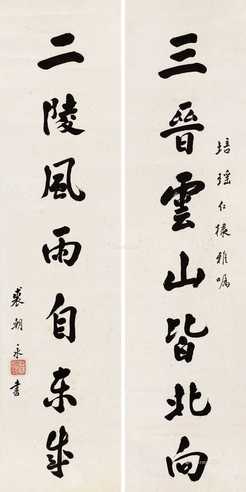 培瑤仁棣雅嘱
三晉雲山皆北向
二陵風雨自東來
裘朝永書